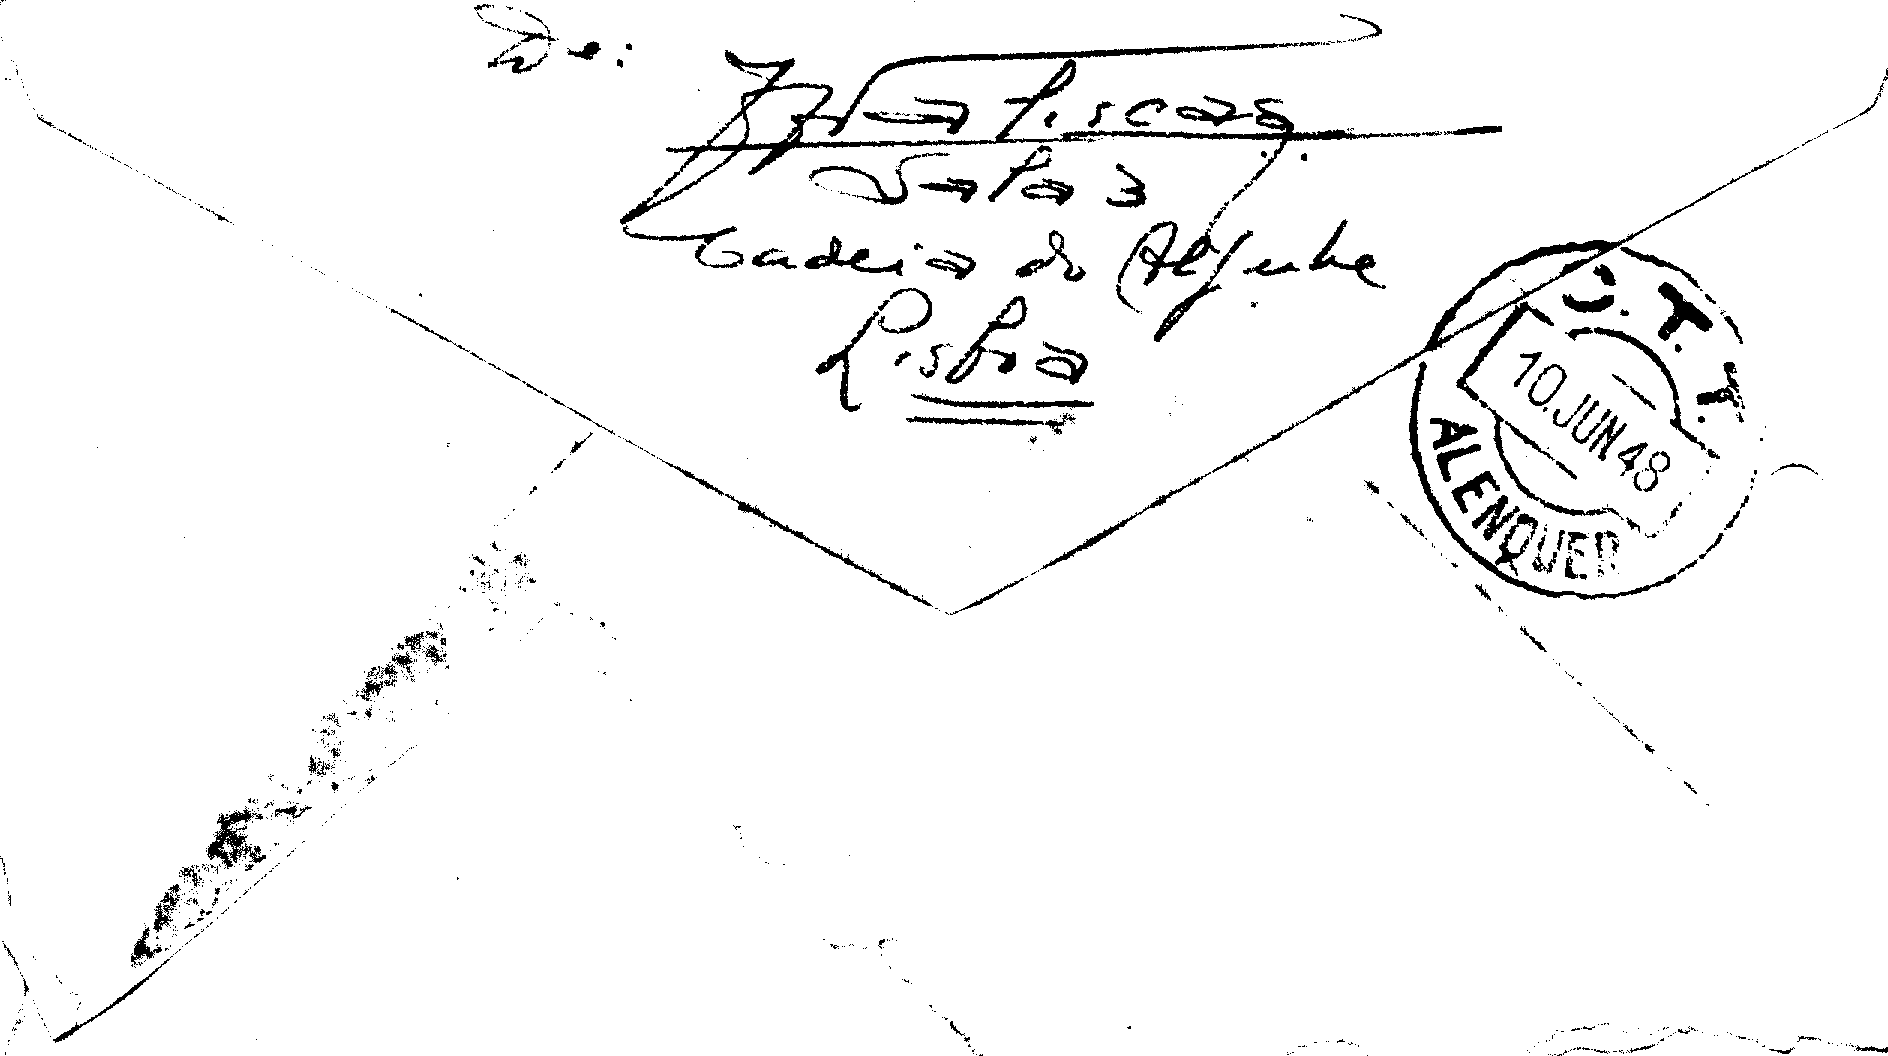 De:
Sala 3
Cadeia do Aljube
Lisboa
C.T.T.
10.JUN 48
ALENQUER